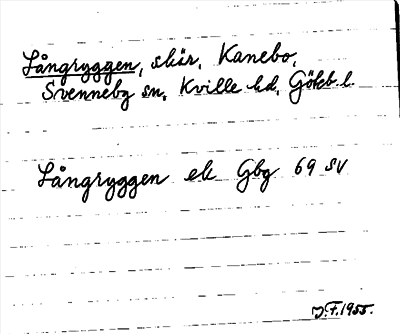 Långryggen, skär, Kanebo,
Svenneby sn, Kville hd, Göteb. l.
Långryggen ek Gbg 69 SV
J.F. 1955.